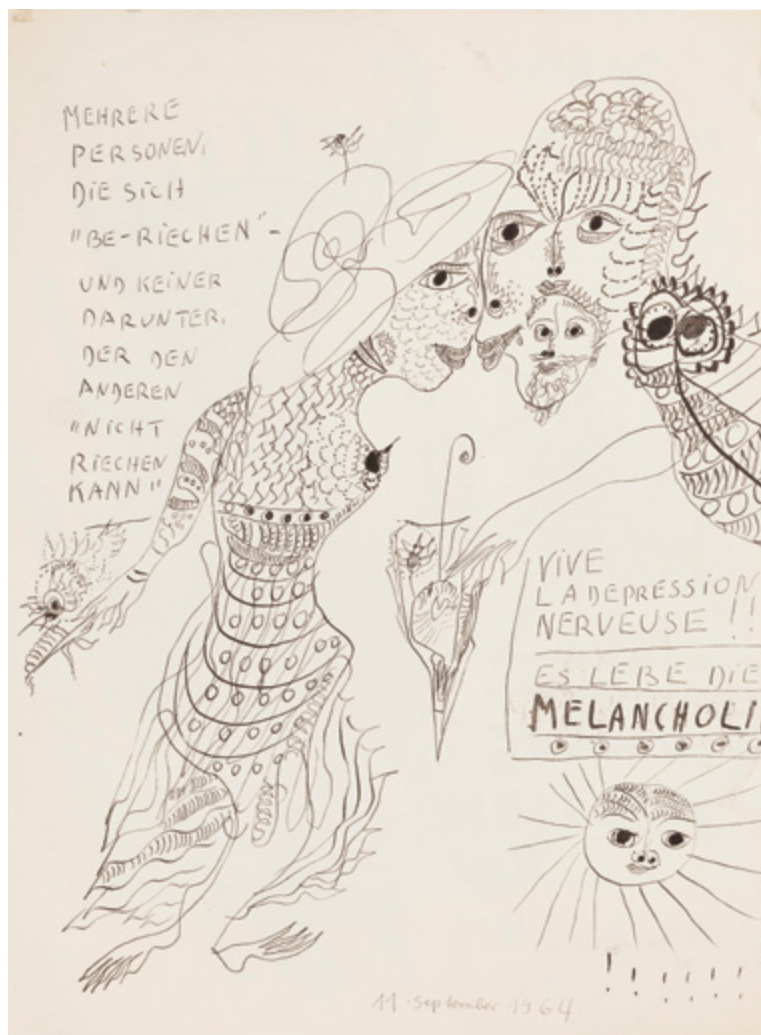 MEHRERE
PERSONEN,
DIE SICH
"BE-RIECHEN"-
UND KEINER
DARUNTER,
DER DEN
ANDEREN
"NICHT
RIECHEN
KANN"
VIVE
LA DEPRESSION
NERVEUSE!!
ES LEBE DIE
MELANCHOLI
!!!!!!
11. September 1964